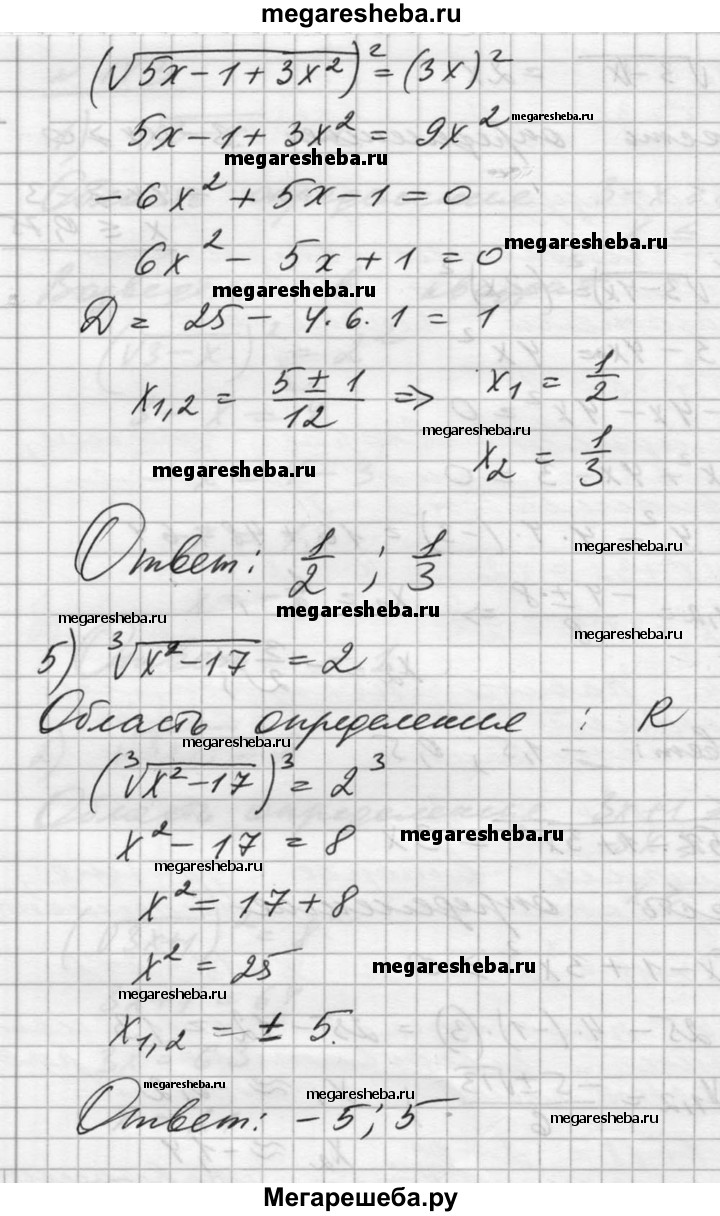 megaresheba.ru
(√5x-1+3x²)² = (3x)²
megaresheba.ru
5x-1+3x² = 9x²
megaresheba.ru
-6x²+5x-1=0
megaresheba.ru
6x²-5x+1=0
megaresheba.ru
D = 25 - 4·6·1 = 1
x₁,₂ = (5±1)/12 ⇒ x₁ = 1/2
megaresheba.ru
x₂ = 1/3
megaresheba.ru
Ответ: 1/2 ; 1/3
megaresheba.ru
megaresheba.ru
megaresheba.ru
megaresheba.ru
5) ∛x²-17 = 2
Область определения : R
megaresheba.ru
(∛x²-17)³ = 2³
megaresheba.ru
x²-17 = 8
megaresheba.ru
x² = 17+8
x² = 25
megaresheba.ru
megaresheba.ru
x₁,₂ = ± 5.
megaresheba.ru
megaresheba.ru
Ответ: -5; 5
megaresheba.ru
Мегарешеба.ру